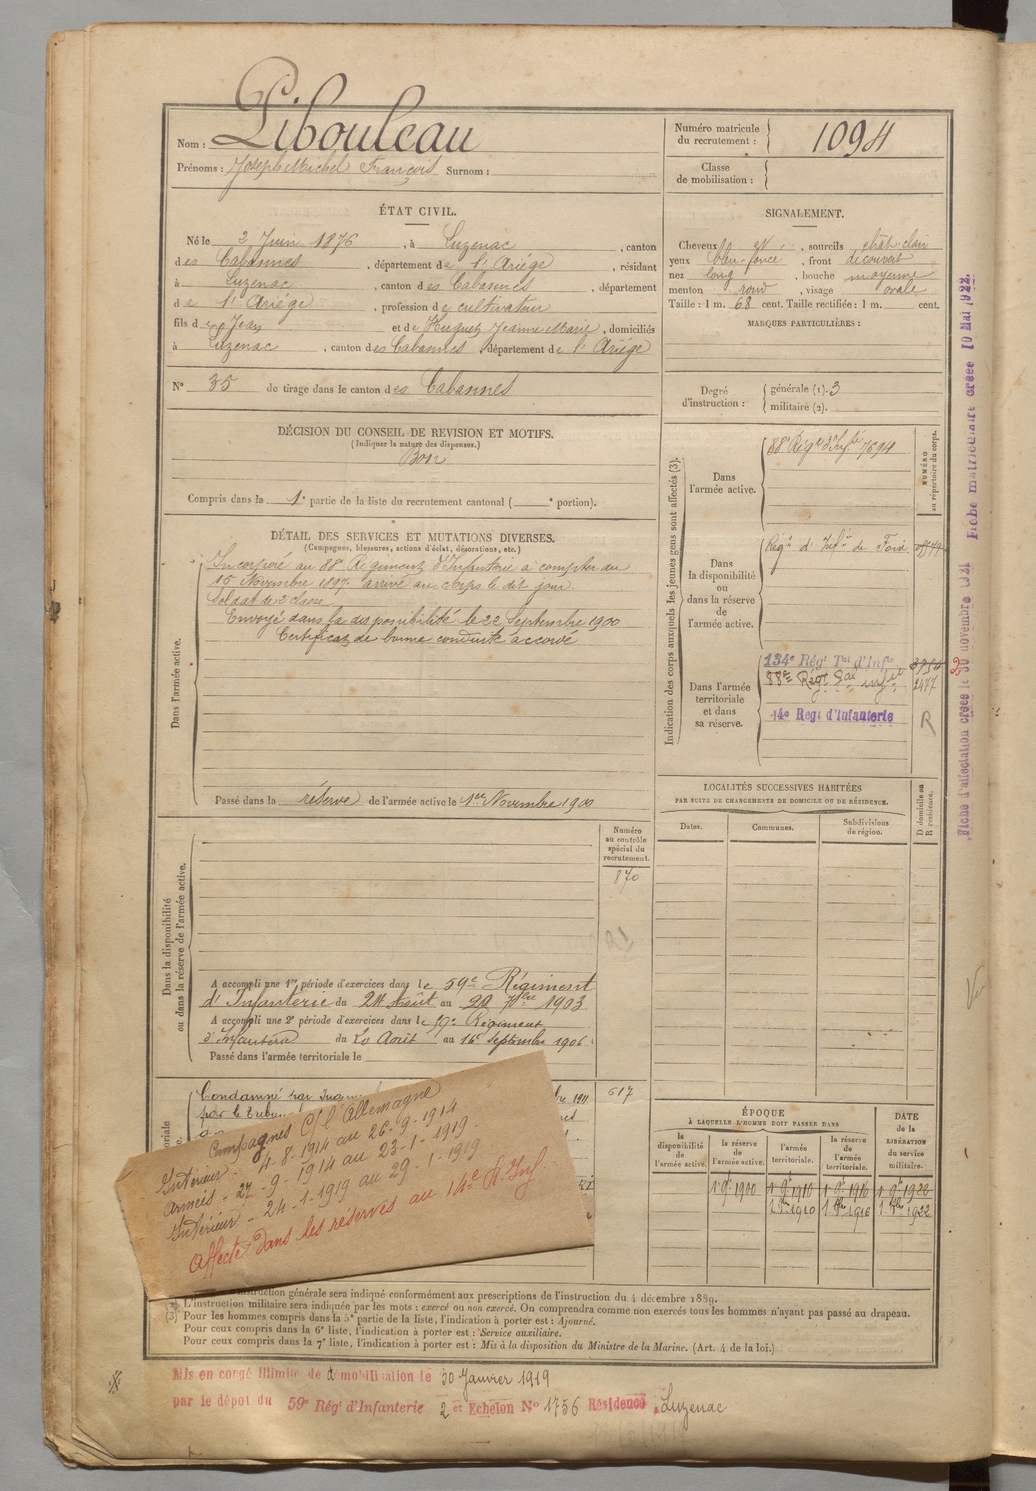 Nom : Libouleau
Prénoms : Joseph Michel François Surnom :
Numéro matricule du recrutement : 1094
Classe de mobilisation :
ÉTAT CIVIL.
Né le 2 Juin 1876, à Luzenac, canton
des Cabannes, département de l'Ariége, résidant
à Luzenac, canton des Cabannes, département
de l'Ariége, profession de cultivateur
fils de Jean et de Huguet Jeanne Marie, domiciliés
à Luzenac, canton des Cabannes, département de l'Ariége
N° 35 de tirage dans le canton des Cabannes
SIGNALEMENT.
Cheveux, sourcils chât-clair
yeux bleu-foncé, front découvert
nez long, bouche moyenne
menton rond, visage ovale
Taille : 1 m. 68 cent. Taille rectifiée : 1 m. cent.
MARQUES PARTICULIÈRES :
Degré d'instruction : générale (1). 3
militaire (2).
DÉCISION DU CONSEIL DE REVISION ET MOTIFS.
(Indiquer la nature des dispenses.)
Bon
Compris dans la 1e partie de la liste du recrutement cantonal ( e portion).
DÉTAIL DES SERVICES ET MUTATIONS DIVERSES.
(Campagnes, blessures, actions d'éclat, décorations, etc.)
Dans l'armée active.
Incorporé au 88e Régiment d'Infanterie à compter du
15 Novembre 1897 arrivé au corps le dit jour
Soldat de 2 classe
Envoyé dans la disponibilité le 22 Septembre 1900
Certificat de bonne conduite accordé
Passé dans la réserve de l'armée active le 1er Novembre 1900
Indication des corps auxquels les jeunes gens sont affectés (3).
NUMÉRO au répertoire du corps.
Dans l'armée active.
88e Régt d'Infie 7694
Dans la disponibilité ou dans la réserve de l'armée active.
Régt d'Infie de Foix
Dans l'armée territoriale et dans sa réserve.
134e Régt Tal d'Infie
88e Régt
2477
14e Regt d'Infanterie
R
LOCALITÉS SUCCESSIVES HABITÉES
PAR SUITE DE CHANGEMENTS DE DOMICILE OU DE RÉSIDENCE.
Dates.
Communes.
Subdivisions de région.
D domicile ou R résidence.
Dans la disponibilité ou dans la réserve de l'armée active.
Numéro au contrôle spécial du recrutement.
870
A accompli une 1re période d'exercices dans le 59e Régiment
d'Infanterie du 24 Août au 20 7bre 1903
A accompli une 2e période d'exercices dans le 59e Régiment
d'Infanterie du 20 Août au 16 septembre 1906
Passé dans l'armée territoriale le
Condamné par
par le
617
Campagnes C/ l'Allemagne
Intérieur - 4-8-1914 au 26-9-1914
Armées - 27-9-1914 au 23-1-1919
Intérieur - 24-1-1919 au 29-1-1919
Affecté dans les réserves au 14e R. Inf.
ÉPOQUE
À LAQUELLE L'HOMME DOIT PASSER DANS
la disponibilité de l'armée active.
la réserve de l'armée active.
l'armée territoriale.
la réserve de l'armée territoriale.
DATE de la LIBÉRATION du service militaire.
1 9e 1900 1 9e 1910 1 9e 1916 1 9e 1922
1 8bre 1910 1 8bre 1916 1 8bre 1922
instruction générale sera indiqué conformément aux prescriptions de l'instruction du 4 décembre 1889.
L'instruction militaire sera indiquée par les mots : exercé ou non exercé. On comprendra comme non exercés tous les hommes n'ayant pas passé au drapeau.
(3) Pour les hommes compris dans la 5e partie de la liste, l'indication à porter est : Ajourné.
Pour ceux compris dans la 6e liste, l'indication à porter est : Service auxiliaire.
Pour ceux compris dans la 7e liste, l'indication à porter est : Mis à la disposition du Ministre de la Marine. (Art. 4 de la loi.)
Mis en congé illimité de démobilisation le 30 Janvier 1919
par le dépôt du 59e Régt d'Infanterie 2 et Echelon N° 1756 Résidence Luzenac
Fiche d'affectation créée le 30 novembre 1921
Fiche matriculaire créée 10 Mai 1922.